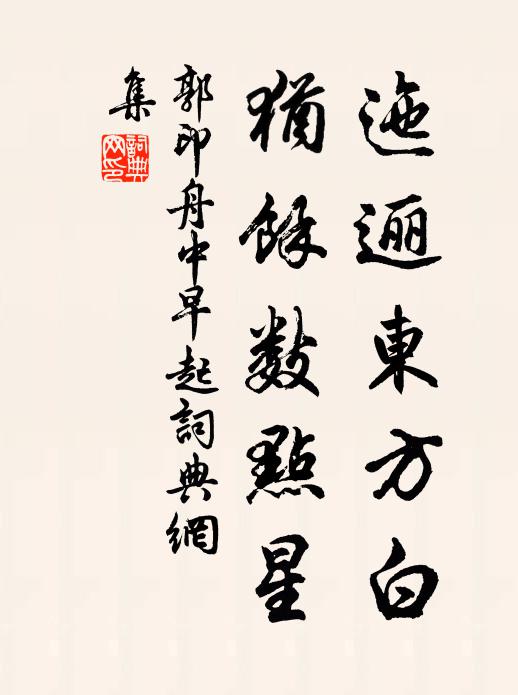 迤逦東方白
猶餘數點星
郭印舟中早起詞典網
集
詞典
网印